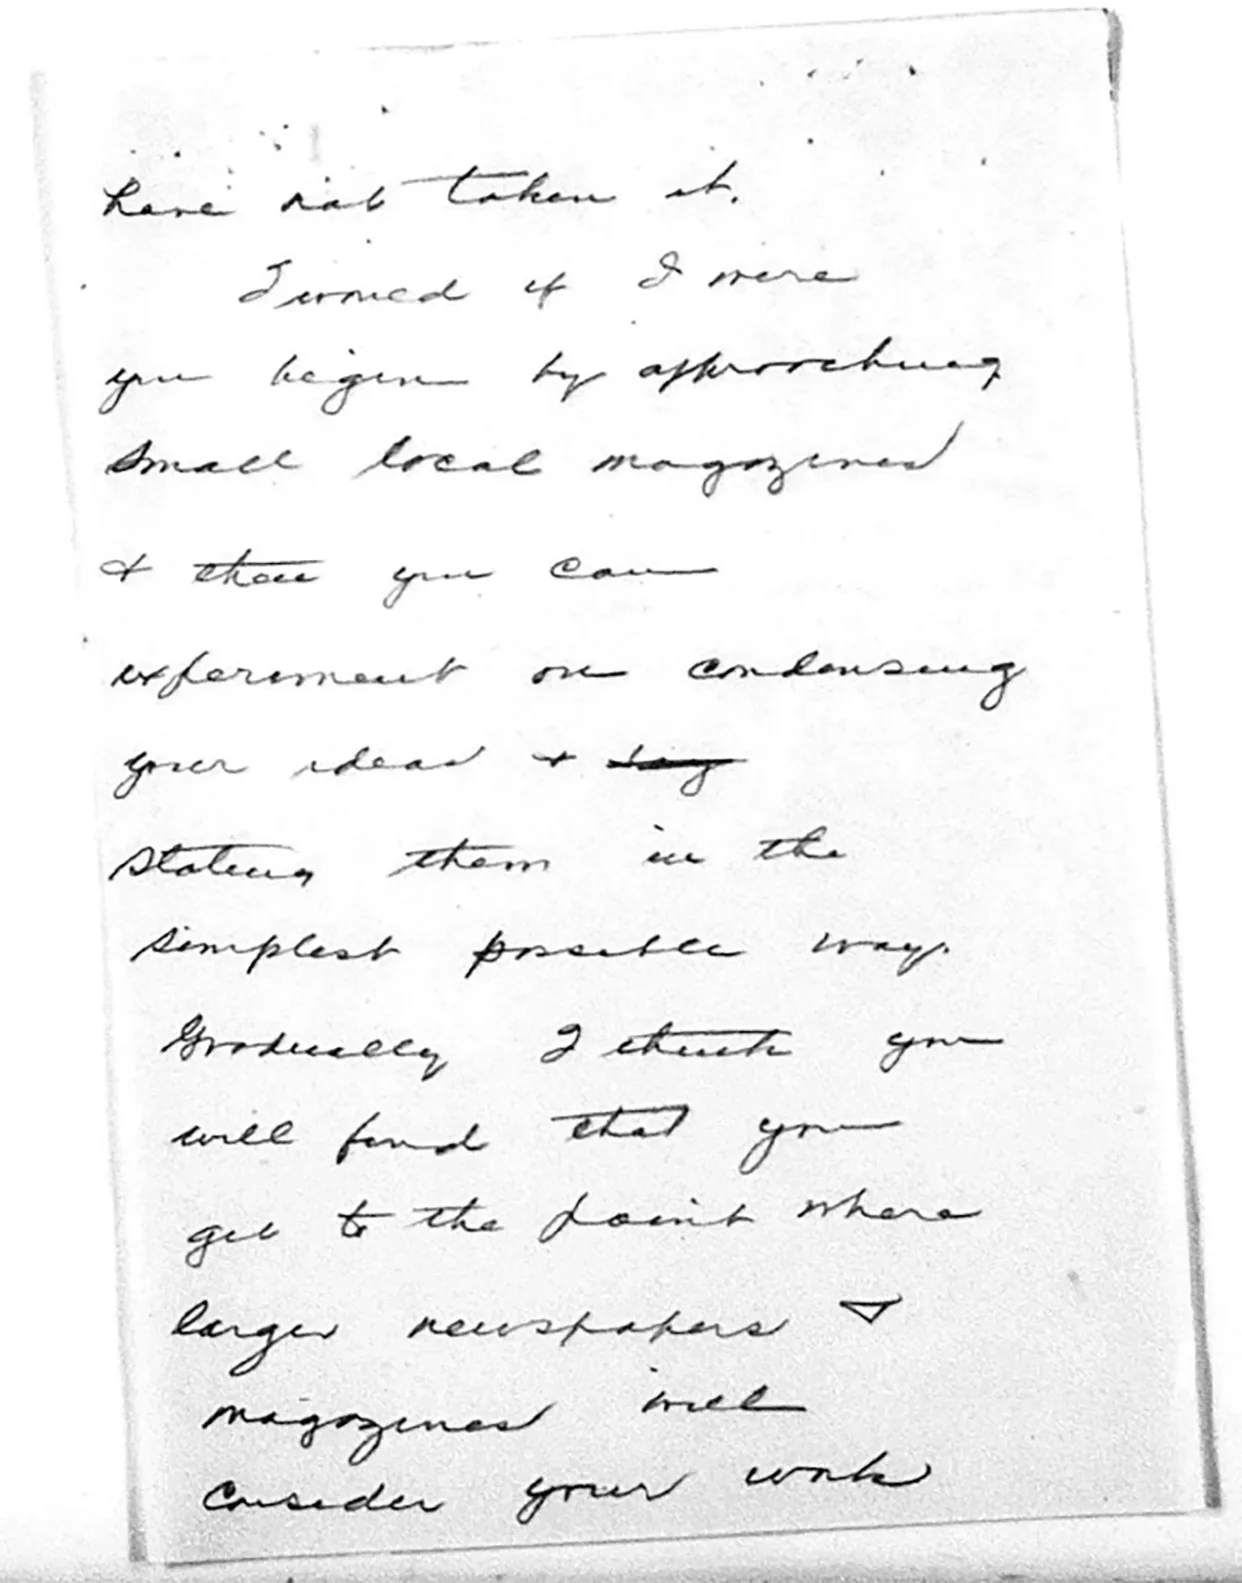 have not taken it.
I would if I were
you begin by approaching
small local magazines
& then you can
experiment on condensing
your ideas &
stating them in the
simplest possible way.
Gradually I think you
will find that you
get to the point where
larger newspapers &
magazines will
consider your work